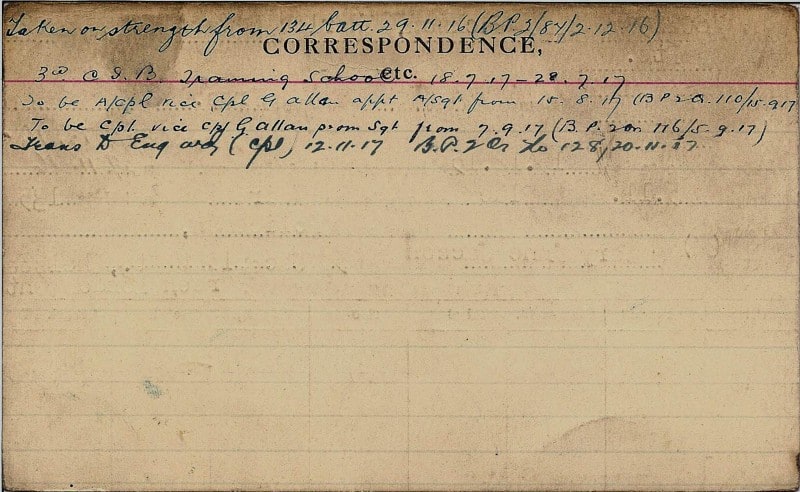 Taken on strength from 134 batt. 29.11.16 (B.P.2/84/2.12.16)
CORRESPONDENCE,
etc.
3rd C I B. Training School 18.7.17 – 28.7.17
To be A/Cpl vice Cpl G Allan appt A/Sgt from 15.8.17 (B P 2 O. 110/15.9.17
To be Cpl. vice Cpl G Allan prom Sgt from 7.9.17 (B.P. 2 Or. 116/5.9.17)
Trans D (Cpl) 12.11.17 B.P. 2 Or No 128/20.11.17